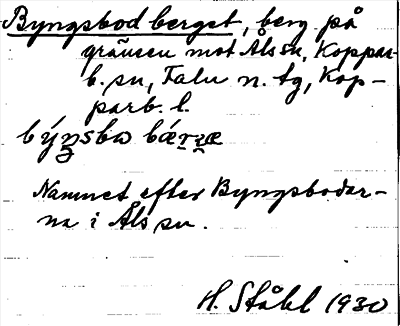 Byngsbodberget, berg på
gränsen mot Åls sn, Koppar-
b. sn, Falu n. tg, Kop-
parb. l.
býŋsbω bǽr̯æ
Namnet efter Byngsbodar-
na i Åls sn.
H. Ståhl 1930